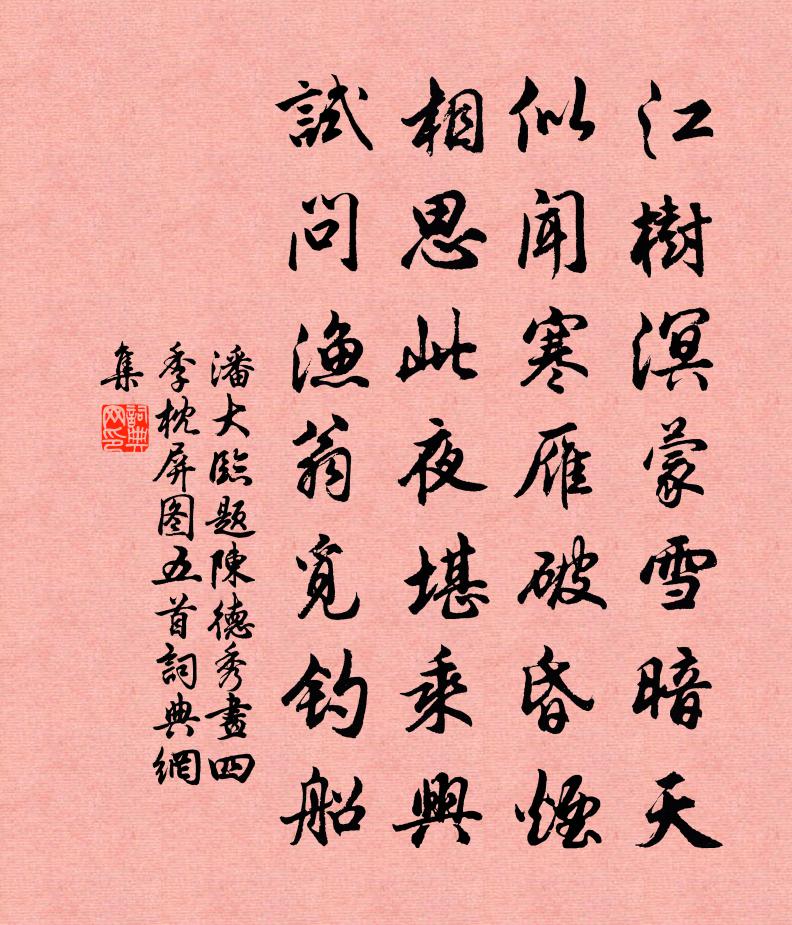 江樹溟蒙雪暗天
似聞寒雁破昏煙
相思此夜堪乘興
試問漁翁覓釣船
潘大臨題陳德秀畫四
季枕屏图五首詞典網
集
詞典
网印